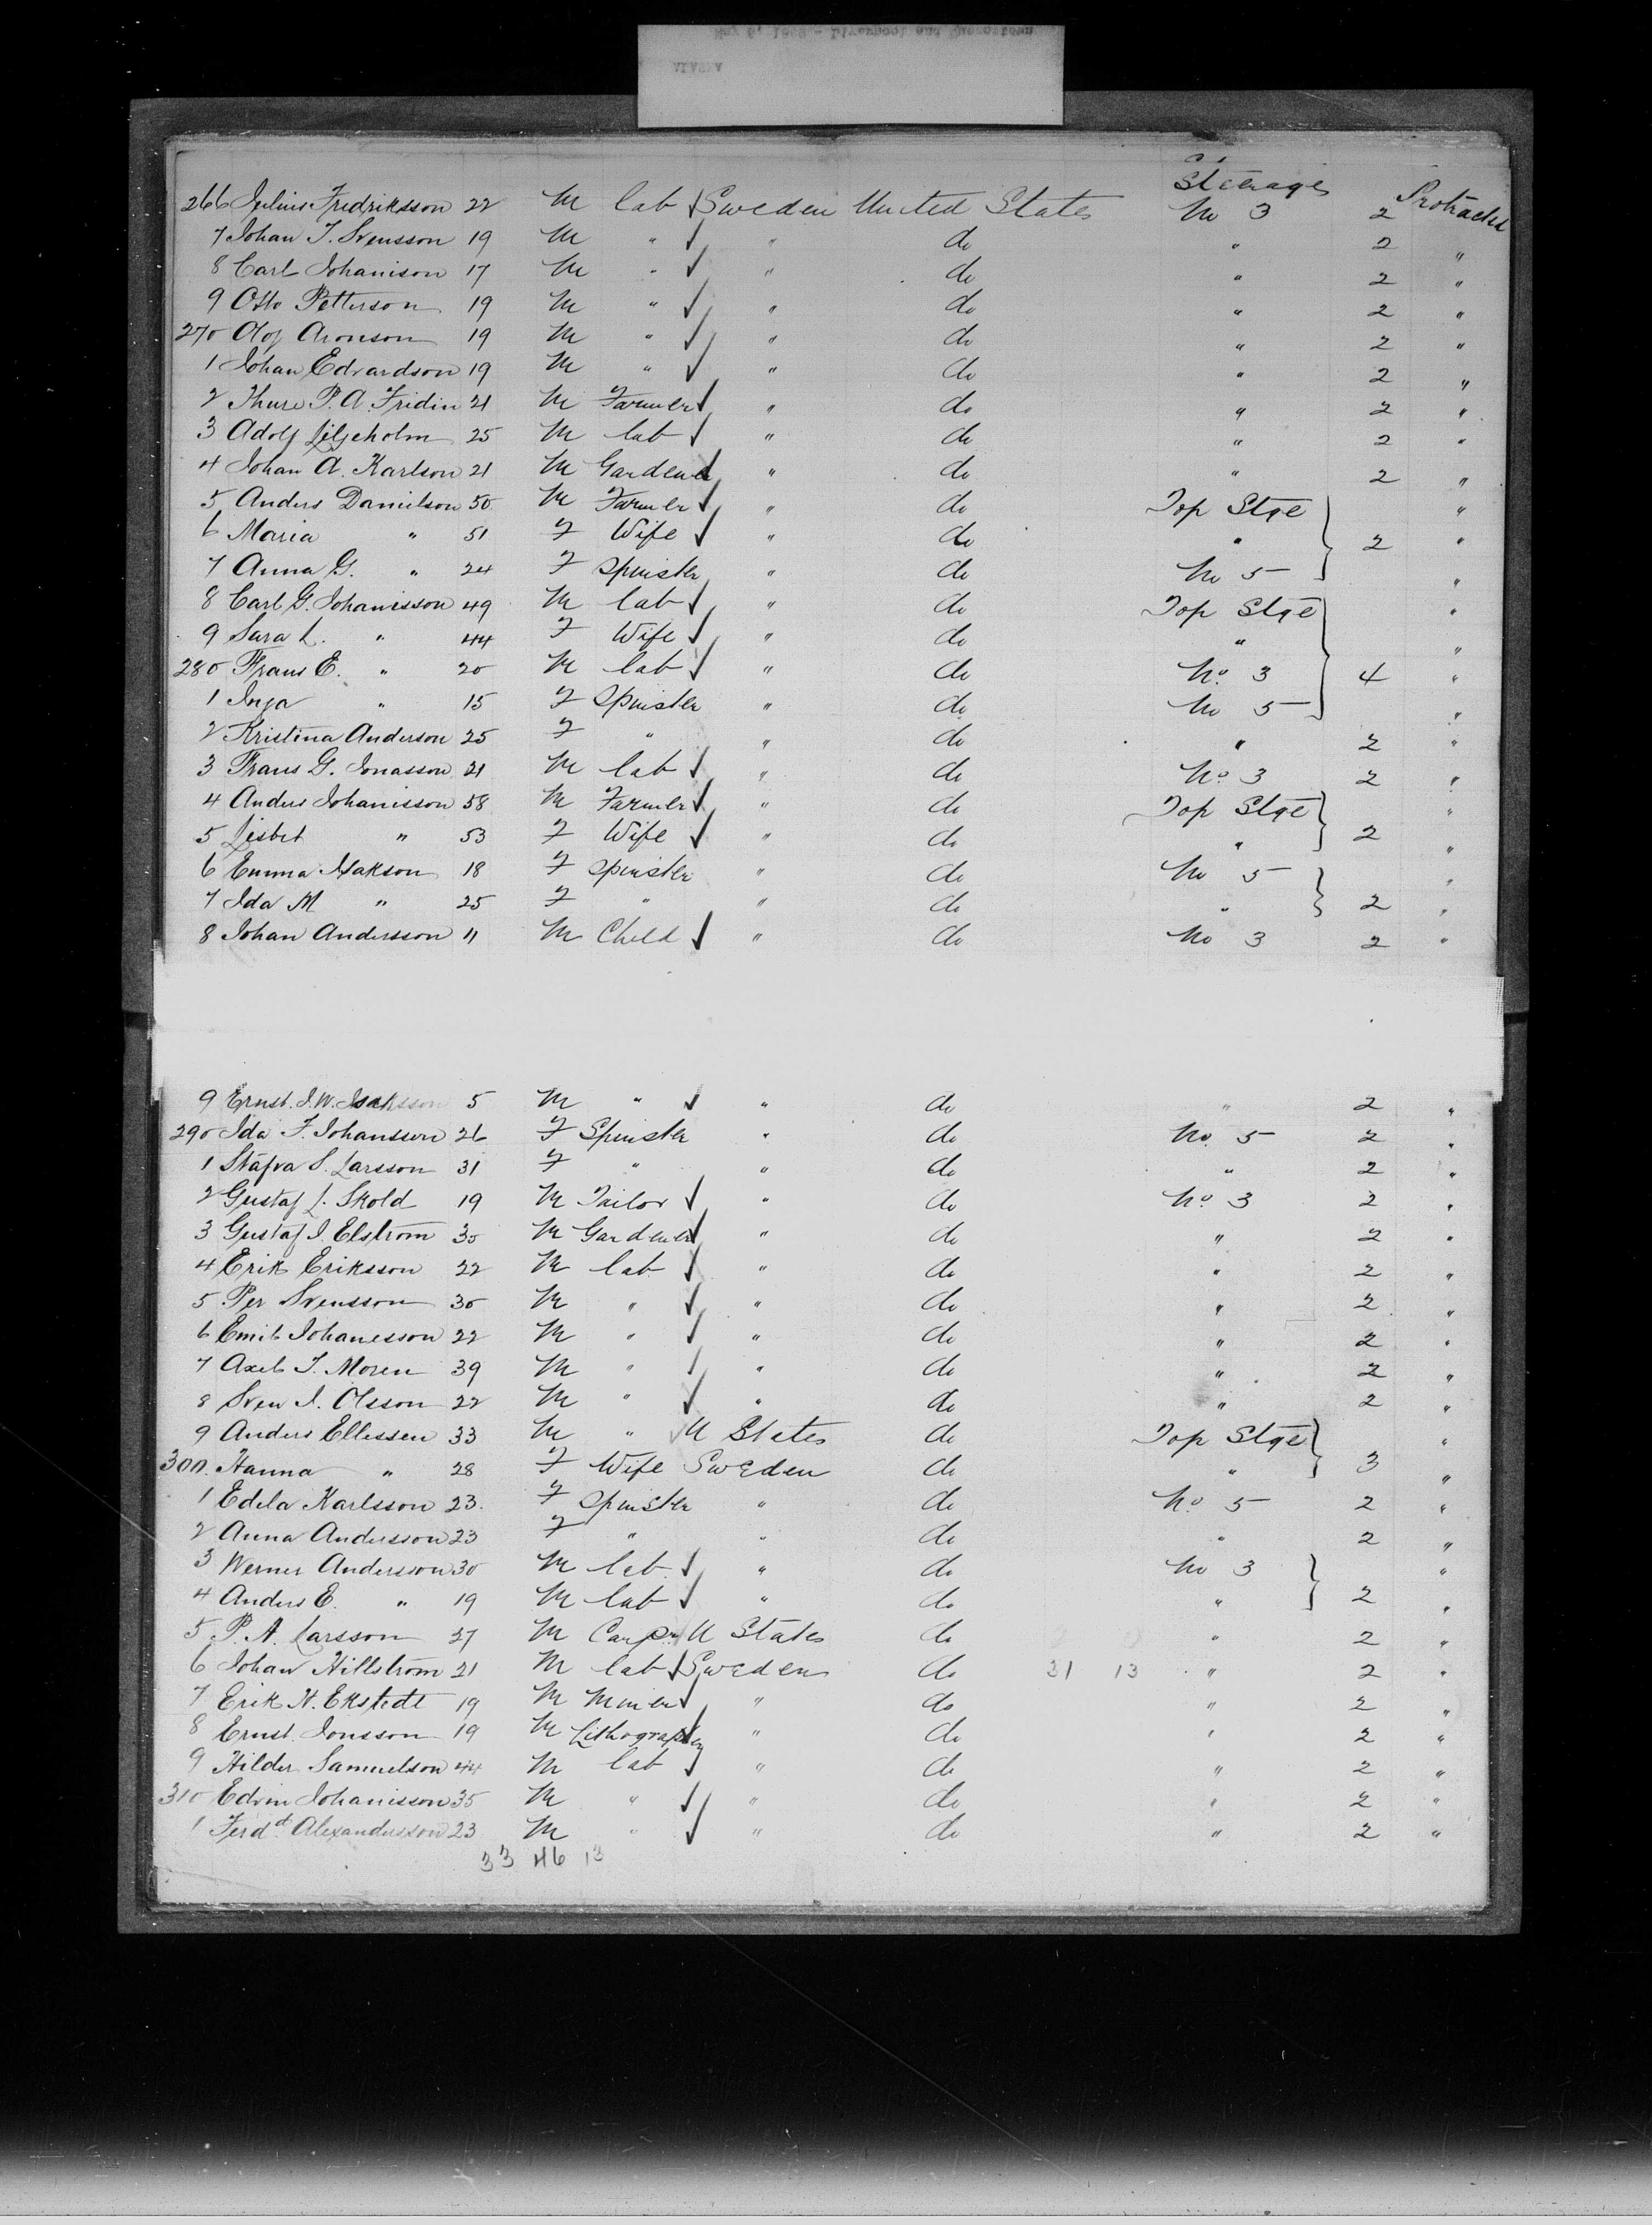 May 6, 1889 - Liverpool and Queenstown
ALASKA
Steerage
266 Julius Fredriksson 22 M lab Sweden United States No 3 2 Protracted
7 Johan T. Svensson 19 M " " do " 2 "
8 Carl Johanison 17 M " " do " 2 "
9 Otto Petterson 19 M " " do " 2 "
270 Olof Aronson 19 M " " do " 2 "
1 Johan Edvardson 19 M " " do " 2 "
2 Thure P. A. Fridin 21 M Farmer " do " 2 "
3 Adolf Liljeholm 25 M lab " do " 2 "
4 Johan A. Karlson 21 M Gardener " do " 2 "
5 Anders Danielson 50 M Farmer " do Top Stge "
6 Maria " 51 F Wife " do " 2 "
7 Anna G. " 24 F Spinster " do No 5 "
8 Carl G. Johanisson 49 M lab " do Top Stge "
9 Sara L. " 44 F Wife " do " "
280 Frans E. " 20 M lab " do No. 3 4 "
1 Inga " 15 F Spinster " do No 5 "
2 Kristina Anderson 25 F " " do " 2 "
3 Frans G. Jonasson 21 M lab " do No. 3 2 "
4 Anders Johanisson 58 M Farmer " do Top Stge "
5 Lisbet " 53 F Wife " do " 2 "
6 Emma Isakson 18 F Spinster " do No 5 "
7 Ida M " 25 F " " do " 2 "
8 Johan Andersson 11 M Child " do No 3 2 "
9 Ernst. J. W. Isaksson 5 M " " do " 2 "
290 Ida F. Johansson 26 F Spinster " do No. 5 2 "
1 Stafva S. Larsson 31 F " " do " 2 "
2 Gustaf L. Skold 19 M Tailor " do No. 3 2 "
3 Gustaf J. Elstrom 30 M Gardener " do " 2 "
4 Erik Eriksson 22 M lab " do " 2 "
5 Per Svensson 30 M " " do " 2 "
6 Emil Johanesson 22 M " " do " 2 "
7 Axel T. Moren 39 M " " do " 2 "
8 Sven J. Olsson 22 M " " do " 2 "
9 Anders Ellessen 33 M " U States do Top Stge "
300. Hanna " 28 F Wife Sweden do " 3 "
1 Edela Karlsson 23. F Spinster " do No. 5 2 "
2 Anna Andersson 23 F " " do " 2 "
3 Werner Andersson 30 M lab " do No 3 "
4 Anders E. " 19 M lab " do " 2 "
5 P. A. Larsson 27 M Carpr U States do " 2 "
6 Johan Hillstrom 21 M lab Sweden do 31 13 " 2 "
7 Erik H. Ekstedt 19 M Miner " do " 2 "
8 Ernst Jonsson 19 M Lithographer " do " 2 "
9 Hilder Samuelson 44 M lab " do " 2 "
310 Edvin Johanisson 35 M " " do " 2 "
1 Ferdd Alexandersson 23 M " " do " 2 "
33 46 13